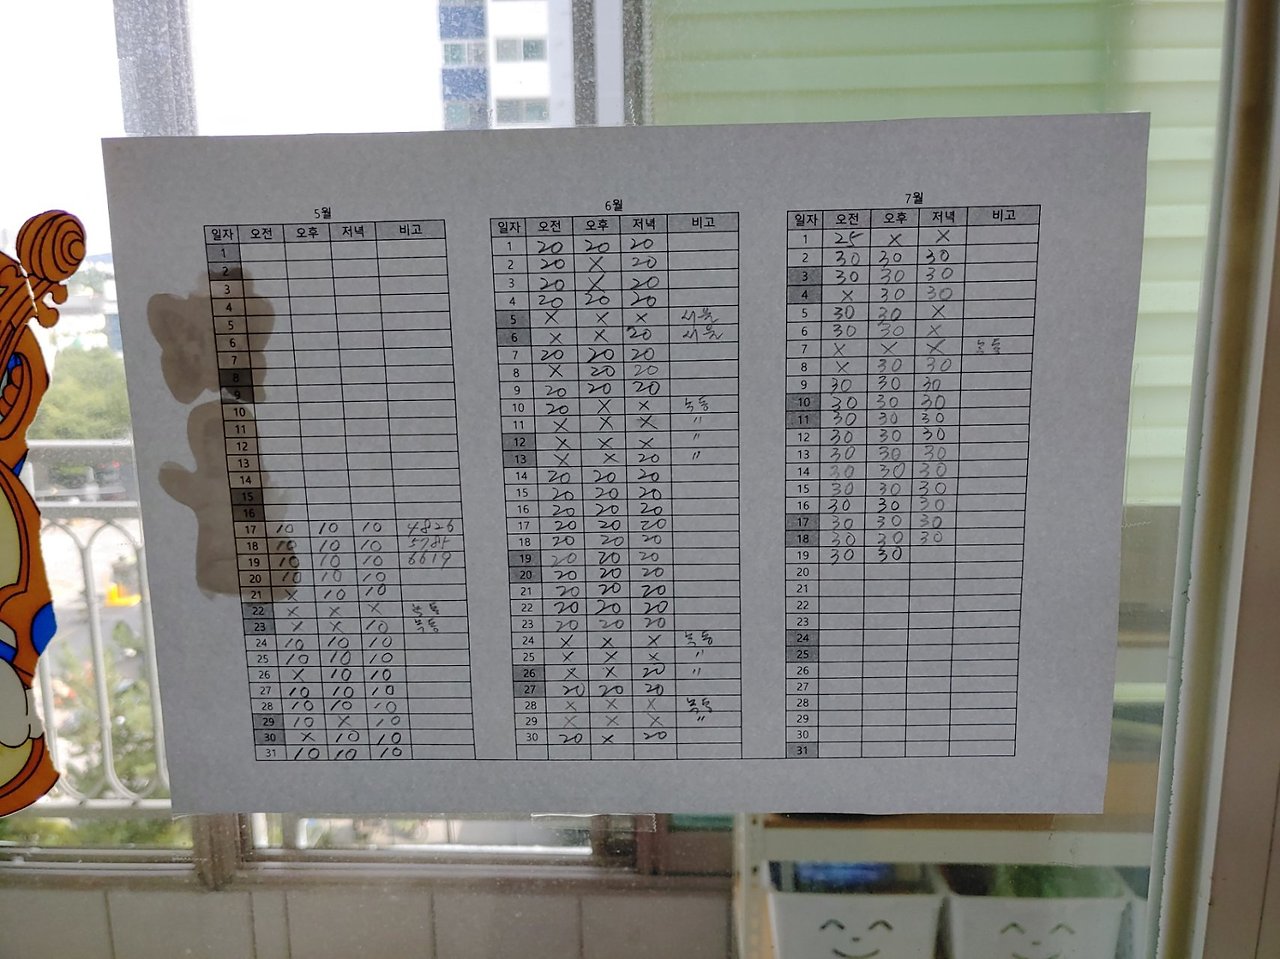 5월
일자 오전 오후 저녁 비고
1
2
3
4
5
6
7
8
9
10
11
12
13
14
15
16
17 10 10 10 4826
18 10 10 10
19 10 10 10 6619
20 10 10 10
21 X 10 10
22 X X X 녹동
23 X X 10 녹동
24 10 10 10
25 10 10 10
26 X 10 10
27 10 10 10
28 10 10 10
29 10 X 10
30 X 10 10
31 10 10 10
6월
일자 오전 오후 저녁 비고
1 20 20 20
2 20 X 20
3 20 X 20
4 20 20 20
5 X X X 서울
6 X X 20 서울
7 20 20 20
8 X 20 20
9 20 20 20
10 20 X X 녹동
11 X X X 〃
12 X X X 〃
13 X X 20 〃
14 20 20 20
15 20 20 20
16 20 20 20
17 20 20 20
18 20 20 20
19 20 20 20
20 20 20 20
21 20 20 20
22 20 20 20
23 20 20 20
24 X X X 녹동
25 X X X 〃
26 X X 20 〃
27 20 20 20
28 X X X 녹동
29 X X X 〃
30 20 X 20
7월
일자 오전 오후 저녁 비고
1 25 X X
2 30 30 30
3 30 30 30
4 X 30 30
5 30 30 X
6 30 30 X
7 X X X 녹동
8 X 30 30
9 30 30 30
10 30 30 30
11 30 30 30
12 30 30 30
13 30 30 30
14 30 30 30
15 30 30 30
16 30 30 30
17 30 30 30
18 30 30 30
19 30 30
20
21
22
23
24
25
26
27
28
29
30
31